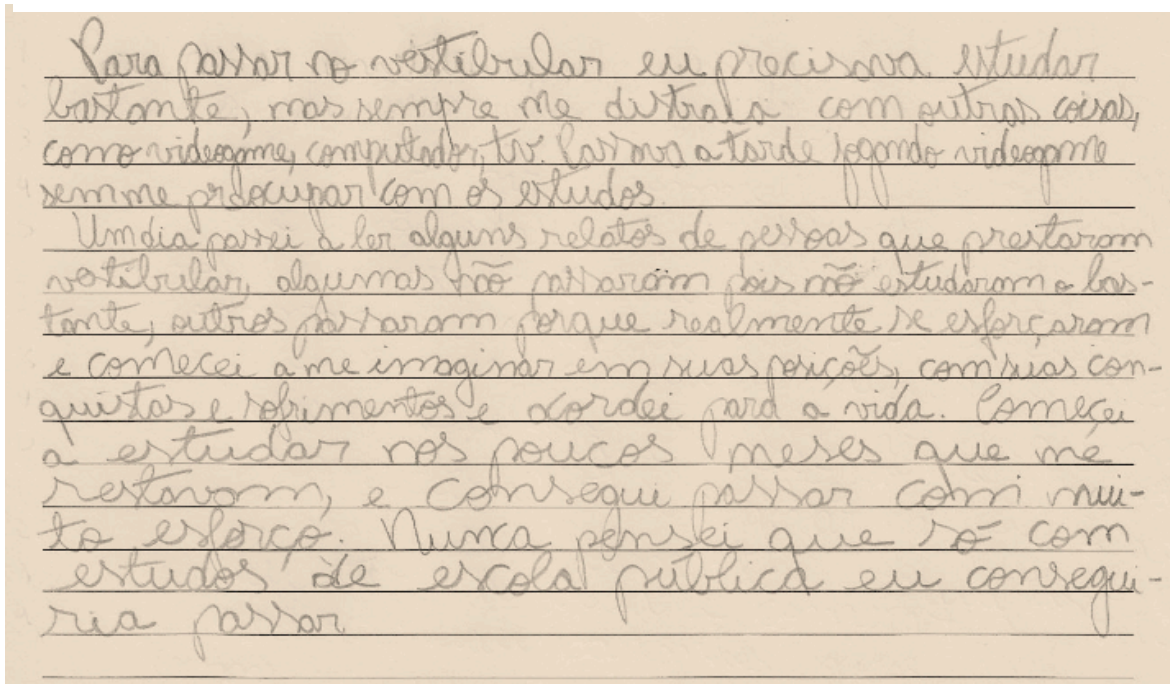 Para passar no vestibular eu precisava estudar
bastante, mas sempre me distraia com outras coisas,
como videogame, computador, tv. Passava a tarde jogando videogame
sem me preocupar com os estudos.
Um dia passei a ler alguns relatos de pessoas que prestaram
vestibular, algumas não passaram pois não estudaram o bas-
tante, outros passaram porque realmente se esforçaram
e comecei a me imaginar em suas posições, com suas con-
quistas e sofrimentos e acordei para a vida. Começei
a estudar nos poucos meses que me
restavam, e consegui passar com mui-
to esforço. Nunca pensei que só com
estudos de escola pública eu consegui-
ria passar